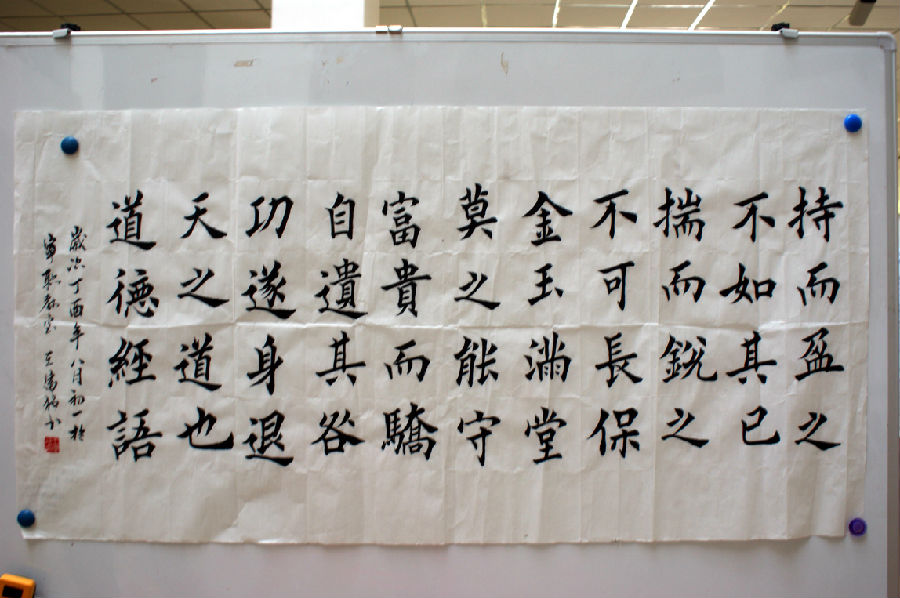 持而盈之
不如其已
揣而銳之
不可長保
金玉滿堂
莫之能守
富貴而驕
自遺其咎
功遂身退
天之道也
道德經語
歲次丁酉年八月初一於